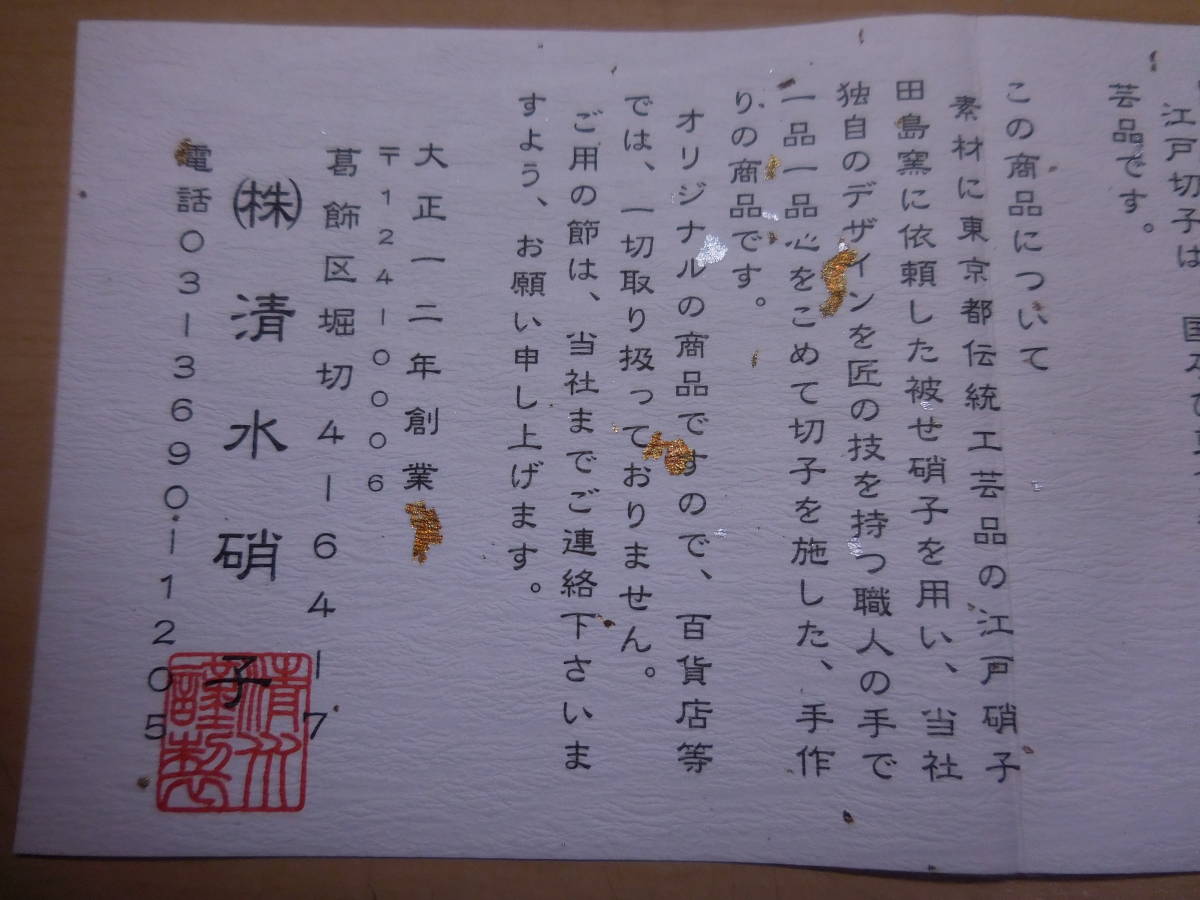 江戸切子は、
芸品です。
この商品について
素材に東京都伝統工芸品の江戸硝子
田島窯に依頼した被せ硝子を用い、当社
独自のデザインを匠の技を持つ職人の手で
一品一品心をこめて切子を施した、手作
りの商品です。
オリジナルの商品ですので、百貨店等
では、一切取り扱っておりません。
ご用の節は、当社までご連絡下さいま
すよう、お願い申し上げます。
大正一二年創業
〒124-0006
葛飾区堀切4-64-7
㈱清水硝子
電話03-3690-1205
清水
謹製